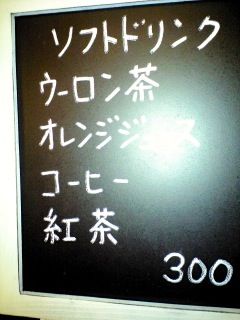 ソフトドリンク
ウーロン茶
オレンジジュース
コーヒー
紅茶
300